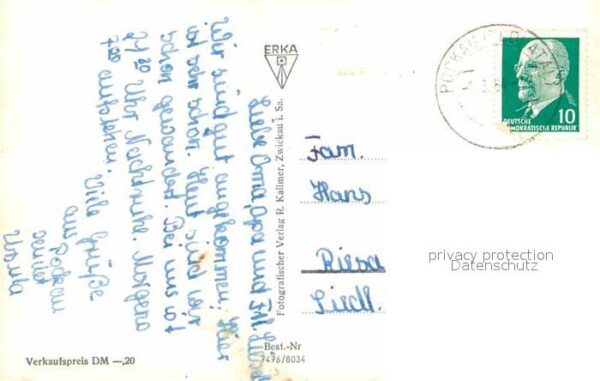 Liebe Oma, Opa und
Wir sind gut angekommen. Hier
ist sehr schön. Heute sind wir
schon gewandert. Bei uns ist
21 30 Uhr Nachtruhe. Morgens
7 00 aufstehen. Viele Grüße
aus Pockau
sendet
ERKA
Fotografischer Verlag R. Kallmer, Zwickau i. Sa.
Best.-Nr
7476/8034
Verkaufspreis DM —,20
POCKAU
10
DEUTSCHE
DEMOKRATISCHE REPUBLIK
Fam.
Hans
Riesa
Siedl.
privacy protection
Datenschutz